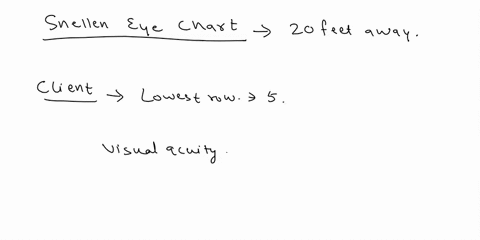 Snellen Eye Chart → 20 feet away.
Client → Lowest row. → 5.
Visual acuity.